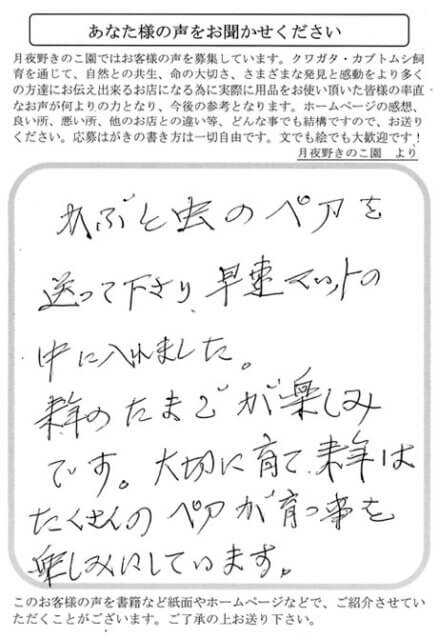 あなた様の声をお聞かせください
月夜野きのこ園ではお客様の声を募集しています。クワガタ・カブトムシ飼
育を通じて、自然との共生、命の大切さ、さまざまな発見と感動をより多く
の方達にお伝え出来るお店になる為に実際に用品をお使い頂いた皆様の率直
なお声が何よりの力となり、今後の参考となります。ホームページの感想、
良い所、悪い所、他のお店との違い等、どんな事でも結構ですので、お送り
ください。応募はがきの書き方は一切自由です。文でも絵でも大歓迎です！
月夜野きのこ園　より
かぶと虫のペアを
送って下さり、早速マットの
中に入れました。
来年のたまごが楽しみ
です。大切に育て、来年は
たくさんのペアが育つ事を
楽しみにしています。
このお客様の声を書籍など紙面やホームページなどで、ご紹介させてい
ただくことがございます。ご了承の上お送り下さい。